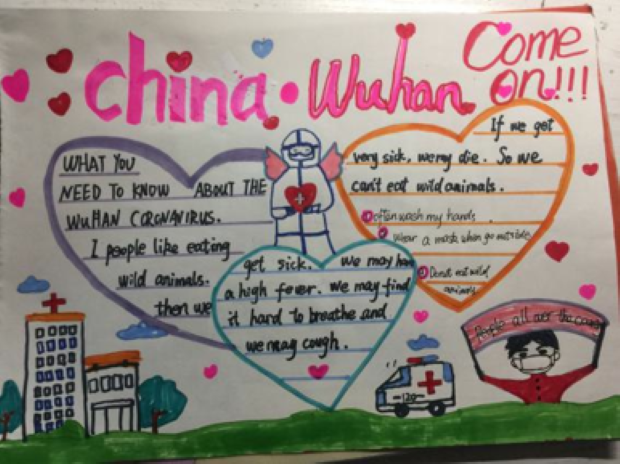 china · Wuhan
Come
on!!!
WHAT YOU
NEED TO KNOW ABOUT THE
WUHAN CORONAVIRUS.
I people like eating
wild animals.
then we
get sick. we may have
a high fever. we may find
it hard to breathe and
we may cough.
If we get
very sick, we may die. So we
can't eat wild animals.
often wash my hands.
wear a mask when go outside
Do not eat wild
animals
People all over the
120